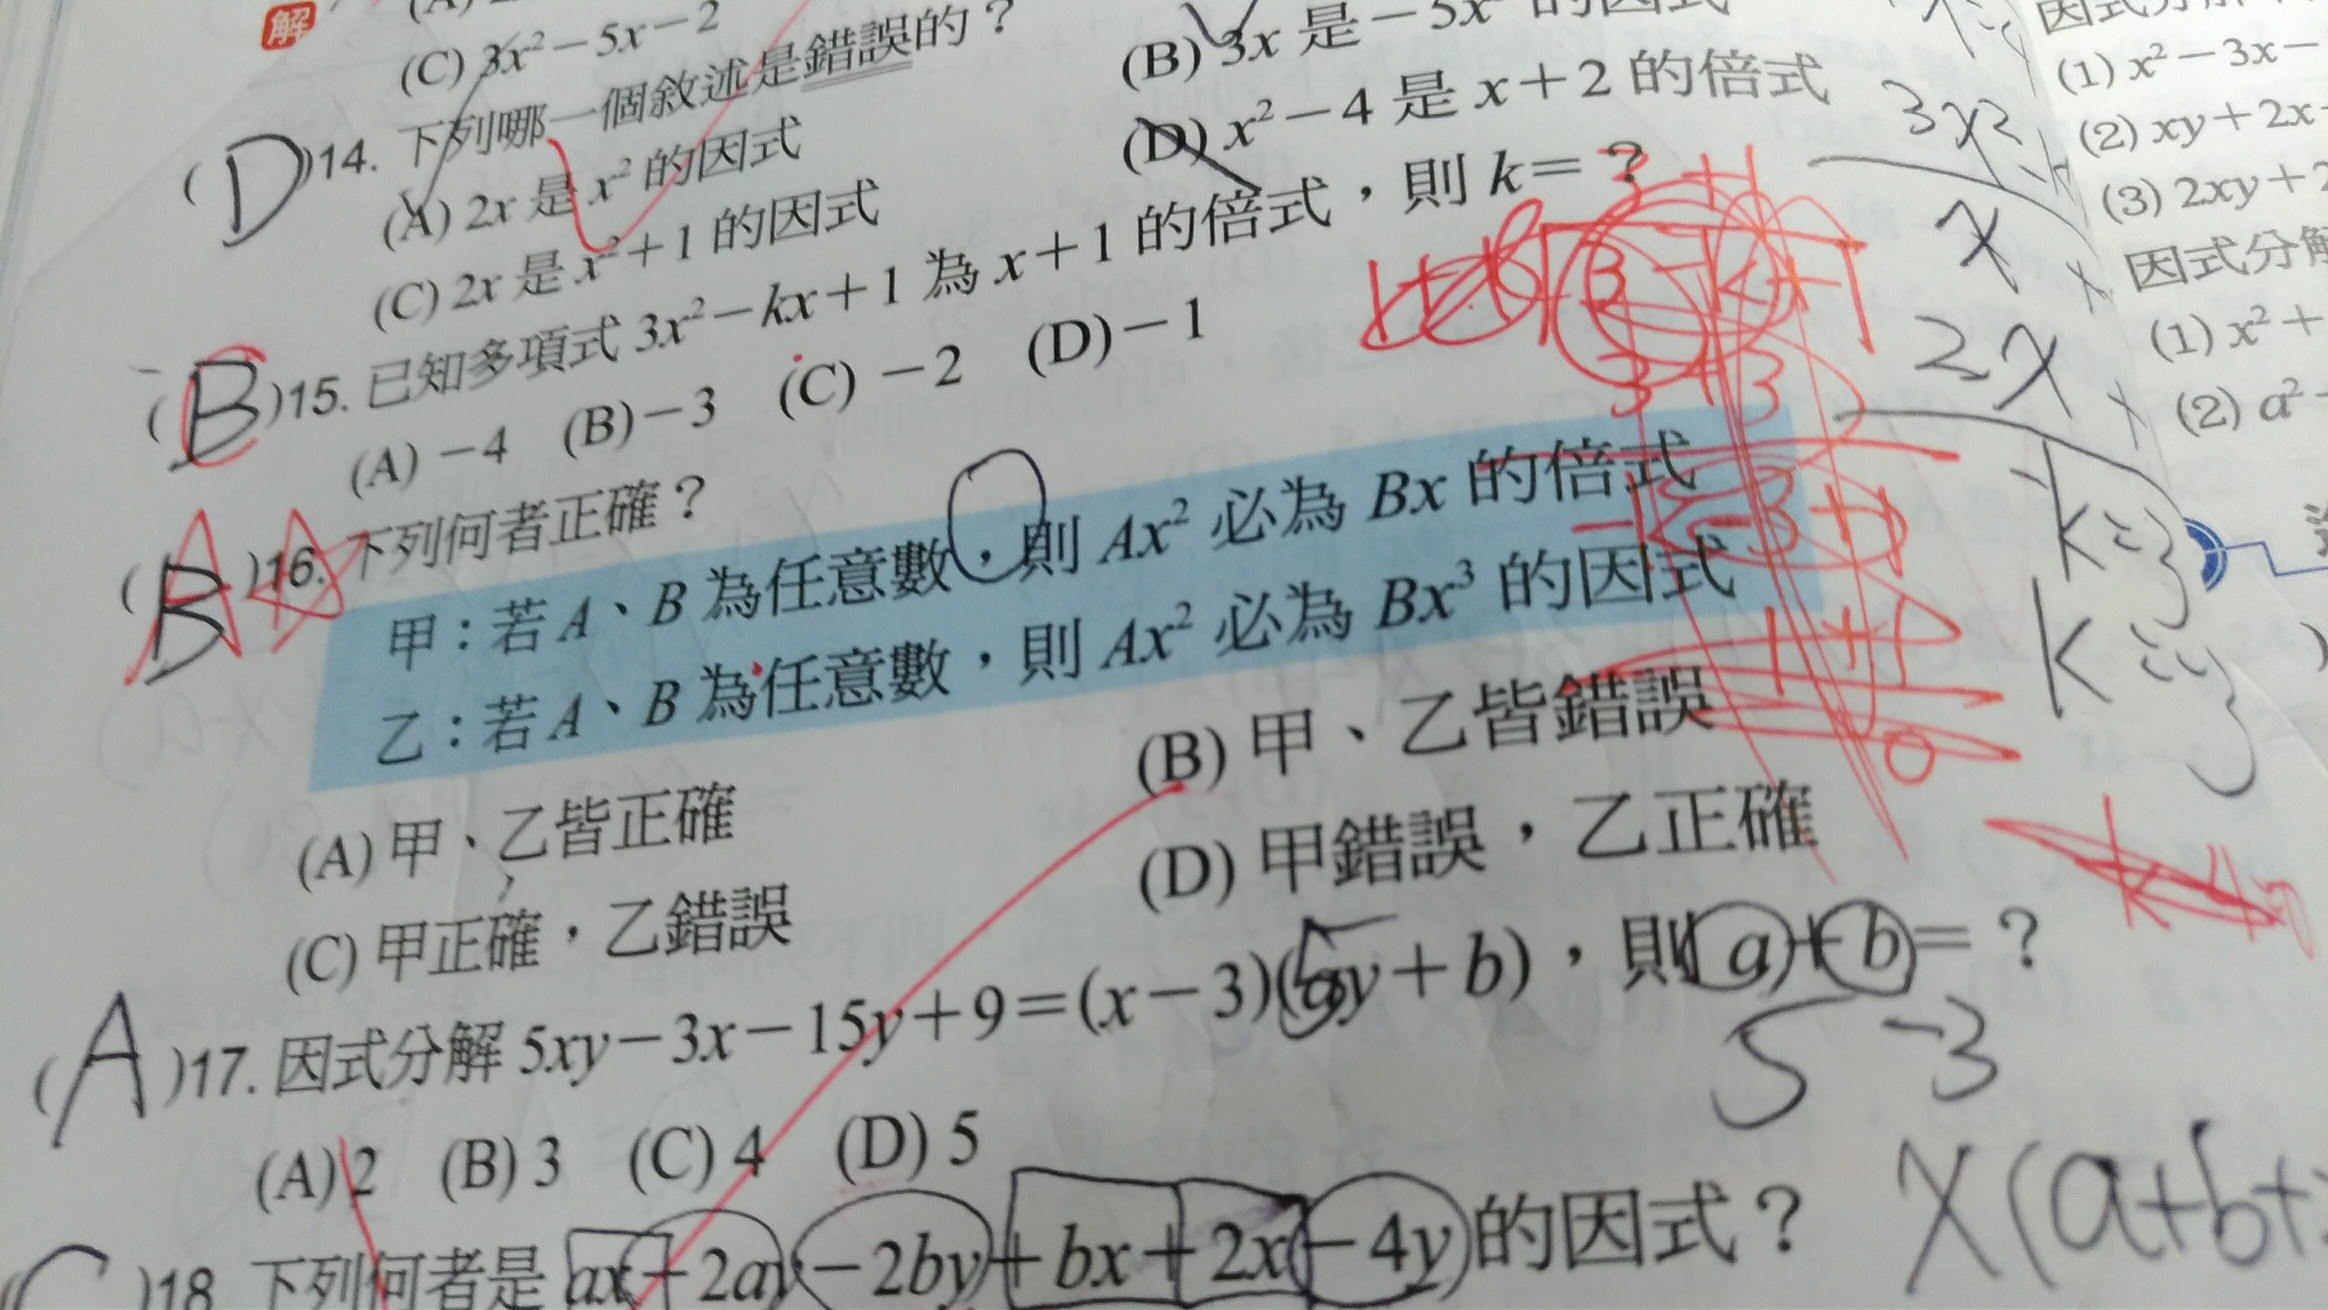 解
(C) 3x²－5x－2
(D)14. 下列哪一個敘述是錯誤的？
(A) 2x 是 x² 的因式
(B) 3x 是－5x 的因式
(C) 2x 是 x²＋1 的因式
(D) x²－4 是 x＋2 的倍式
(B)15. 已知多項式 3x²－kx＋1 為 x＋1 的倍式，則 k＝？
(A)－4 (B)－3 (C)－2 (D)－1
(B)16. 下列何者正確？
甲：若 A、B 為任意數，則 Ax² 必為 Bx 的倍式
乙：若 A、B 為任意數，則 Ax² 必為 Bx³ 的因式
(A) 甲、乙皆正確
(B) 甲、乙皆錯誤
(C) 甲正確，乙錯誤
(D) 甲錯誤，乙正確
(A)17. 因式分解 5xy－3x－15y＋9＝(x－3)(ay＋b)，則 a＋b＝？
5 －3
(A) 2 (B) 3 (C) 4 (D) 5
(C)18. 下列何者是 ax－2ay－2by＋bx＋2x－4y 的因式？
x(a+b+
3x²
x
2x
-k=3
k=-3
(1) x²－3x－
(2) xy＋2x
(3) 2xy＋2
因式分解
(1) x²＋
(2) a²－